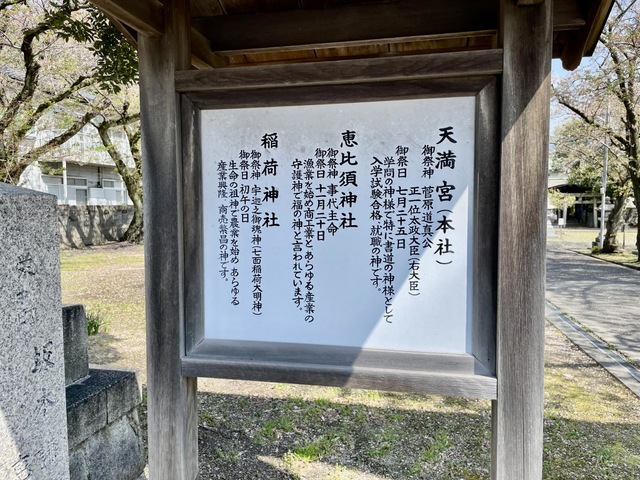 天満宮(本社)
御祭神 菅原道真公
正一位太政大臣(右大臣)
御祭日 七月二十五日
学問の神様で特に書道の神様として
入学試験合格、就職の神です。
恵比須神社
御祭神 事代主命
御祭日 十一月二十日
漁業を始め商工業とあらゆる産業の
守護神で福の神と言われています。
稲荷神社
御祭神 宇迦之御魂神(七面稲荷大明神)
御祭日 初午の日
生命の祖神で農業を始め あらゆる
産業興隆、商売繁昌の神です。
坂本